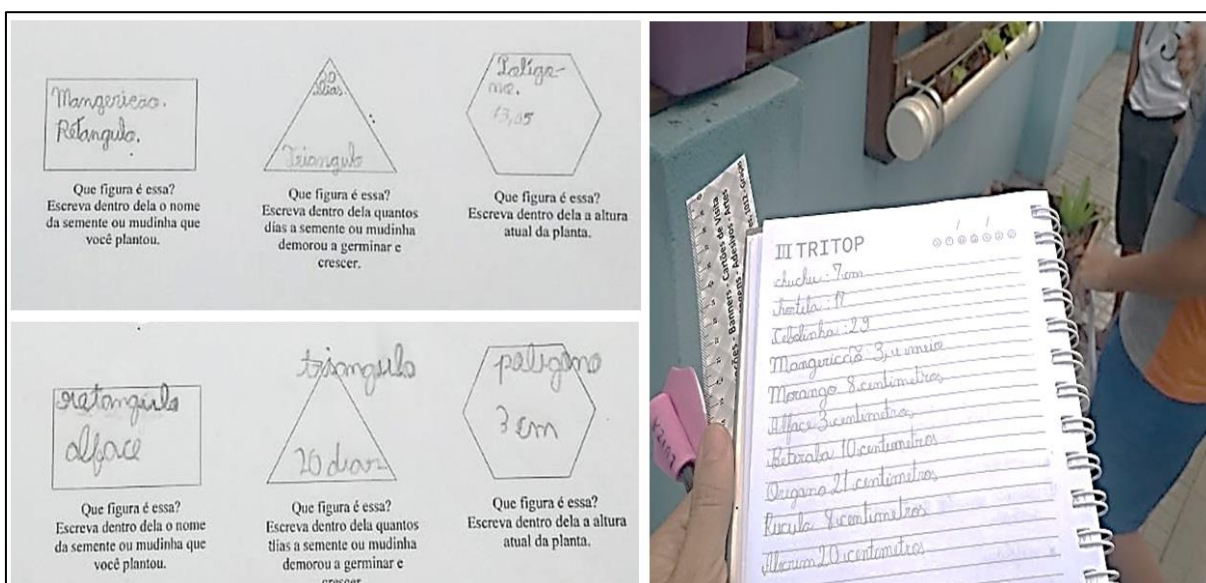 Mangericão.
Retangulo.
Que figura é essa?
Escreva dentro dela o nome
da semente ou mudinha que
você plantou.
20
dias.
Triangulo
Que figura é essa?
Escreva dentro dela quantos
dias a semente ou mudinha
demorou a germinar e
crescer.
Poligo-
no.
13,05
Que figura é essa?
Escreva dentro dela a altura
atual da planta.
retangulo
alface
Que figura é essa?
Escreva dentro dela o nome
da semente ou mudinha que
você plantou.
triangulo
20 dias
Que figura é essa?
Escreva dentro dela quantos
dias a semente ou mudinha
demorou a germinar e
crescer
poligono
3 cm
Que figura é essa?
Escreva dentro dela a altura
atual da planta.
Banners - Cartões de Visita
Adesivos - Artes
III TRITOP
chuchu: 7 cm
hortela: 17
Cebolinha: 29
Mangericão 3, e meio
Morango 8 centimetros
Alface 3 centimetros
Beteraba 10 centimetros
Oregano 21 centimetros
Rucula 8 centimetros
Alecrim 20 centimetros